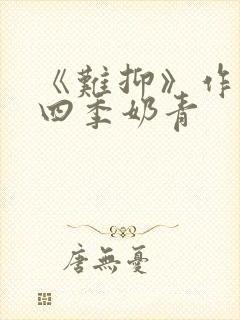 《難抑》作
四季奶青
唐無憂